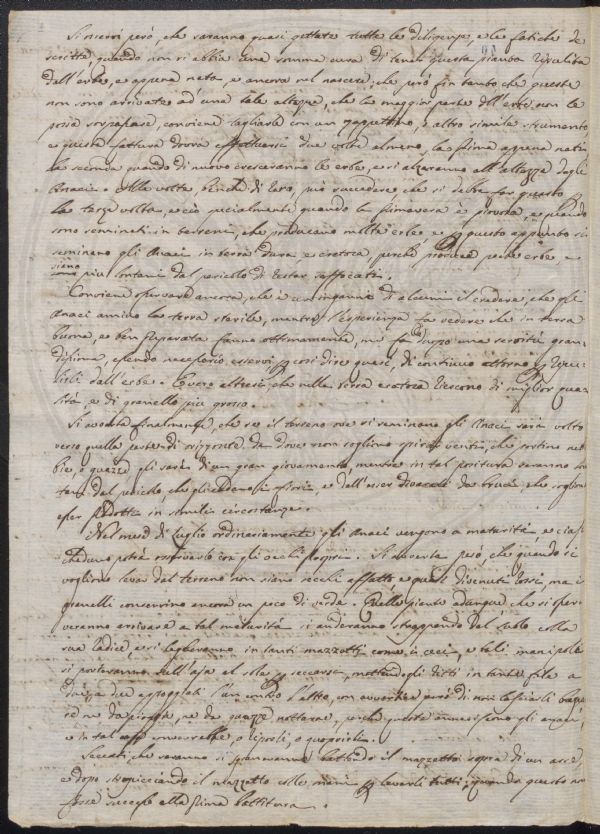 Si osservi però, che saranno quasi gettate tutte le diligenze, e le fatiche de
scritte, quando non si abbia una somma cura di tener questa pianta ripulita
dall'erbe, e appena nata, e ancora nel nascere, che però fin tanto, che queste
non sono arrivate ad una tale altezza, che la maggior parte dell'erbe non le
possa sorpassare, conviene tagliarle con un zappettino, o altro simile strumento
e questa fattura dovrà effettuarsi due volte almeno, la prima appena nati
la seconda quando di nuovo cresceranno le erbe, e si alzeranno all'altezza degli
Anaci. Alle volte, benché di raro, può succedere che si debba far questo
la terza volta, e ciò specialmente quando la primavera è piovosa, e quando
sono seminati in terreni, che producano molta erba, e questo appunto si
seminano gli Anaci in terra dura, e cretosa, perché produce poche erbe, e
siano più lontani dal pericolo di restar soffocati.
Conviene osservare ancora, che è un inganno di alcuni il credere, che gli
Anaci amino la terra sterile, mentre l'esperienza fa vedere che in terra
buona, e ben preparata fanno ottimamente, ma fa duopo una servitù gran
dissima, essendo necessario esservi così dire quasi di continuo attorno
dall'erbe. È vero altresì, che nella terra cretosa riescono di miglior qua
lità, e di granello più grosso.
Si avverta finalmente, che se il terreno ove si seminano gli Anaci sarà volto
verso quella parte di orizonte da dove non sogliono spirar venti, che portino neb
bie, o guazze gli sarà di un gran giovamento, mentre in tal positura saranno lon
tani dal pericolo, che gli e dell'esser divorati da bruci, che sogliono
esser prodotti in simili circostanze.
Nel mese di luglio ordinariamente gli Anaci vengono a maturità, e cia
scheduno potrà osservarlo con gli occhi propri. Si avverta però, che quando si
vogliono levar dal terreno non siano secchi affatto e quasi divenuti rossi, ma i
granelli conservino ancora un poco di verde. Quelle piante adunque che si osser
veranno arrivare a tal maturità si anderanno strappando dal suolo colla
sua radice, e si legheranno in tanti mazzetti come i ceci, e tali manipoli
si porteranno sull'aja al sole seccarsi, mettendogli ritti in tante file a
due, a due appoggiati l'un contro l'altro, con avvertire però di non lasciarli bagna
re né da pioggia, né da guazze notturne, perché queste annerissono gli anaci,
e in tal caso converrebbe
Seccati, che saranno si sgraneranno battendo il mazzetto sopra di un asse,
e dopo stropicciando il mazzetto colle mani levarli tutti, quando questo non
fosse successo alla prima battitura.